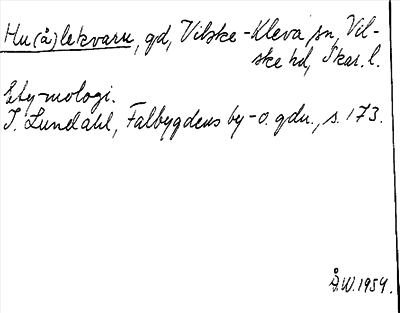 Hu(å)lekvarn, gd, Vilske-Kleva sn, Vil-
ske hd, Skar. l.
Etymologi.
I. Lundahl, Falbygdens by- o. gdn., s. 173.
Å.W. 1954.